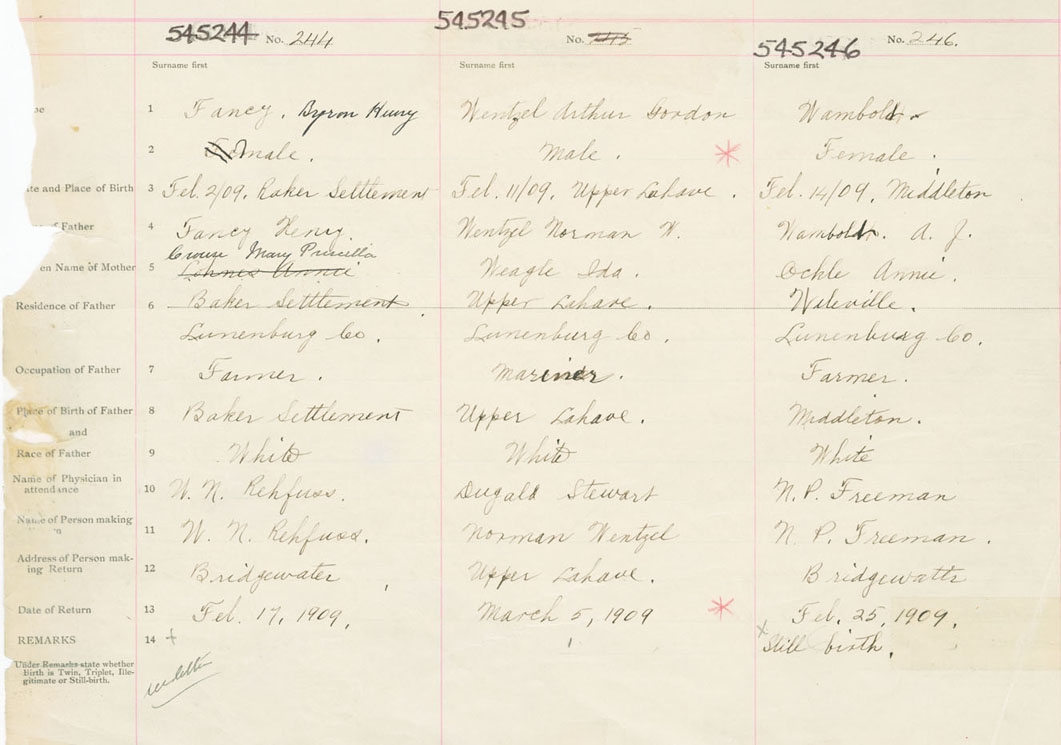 545244 No. 244 545245 No. 245 545246 No. 246.
Surname first Surname first Surname first
1 Fancy, Byron Henry Wentzel Arthur Gordon Wambolt
2 male. Male. Female.
ate and Place of Birth 3 Feb. 2/09. Baker Settlement Feb. 11/09. Upper Lahave. Feb. 14/09. Middleton
of Father 4 Fancy Henry. Wentzel Norman W. Wambolt. A. J.
Crouse Mary Priscilla
en Name of Mother 5 Lohnes Annie Weagle Ida. Ockle Annie.
Residence of Father 6 Baker Settlement. Upper Lahave. Wileville.
Lunenburg Co. Lunenburg Co. Lunenburg Co.
Occupation of Father 7 Farmer. Mariner. Farmer.
Place of Birth of Father 8 Baker Settlement Upper Lahave. Middleton.
and
Race of Father 9 White White White
Name of Physician in
attendance 10 W. N. Rehfuss. Dugald Stewart N. P. Freeman
Name of Person making
n 11 W. N. Rehfuss. Norman Wentzel N. P. Freeman.
Address of Person mak-
ing Return 12 Bridgewater Upper Lahave. Bridgewater
Date of Return 13 Feb. 17, 1909. March 5, 1909 Feb. 25, 1909.
REMARKS 14 Still birth.
Under Remarks state whether
Birth is Twin, Triplet, Ille-
gitimate or Still-birth.